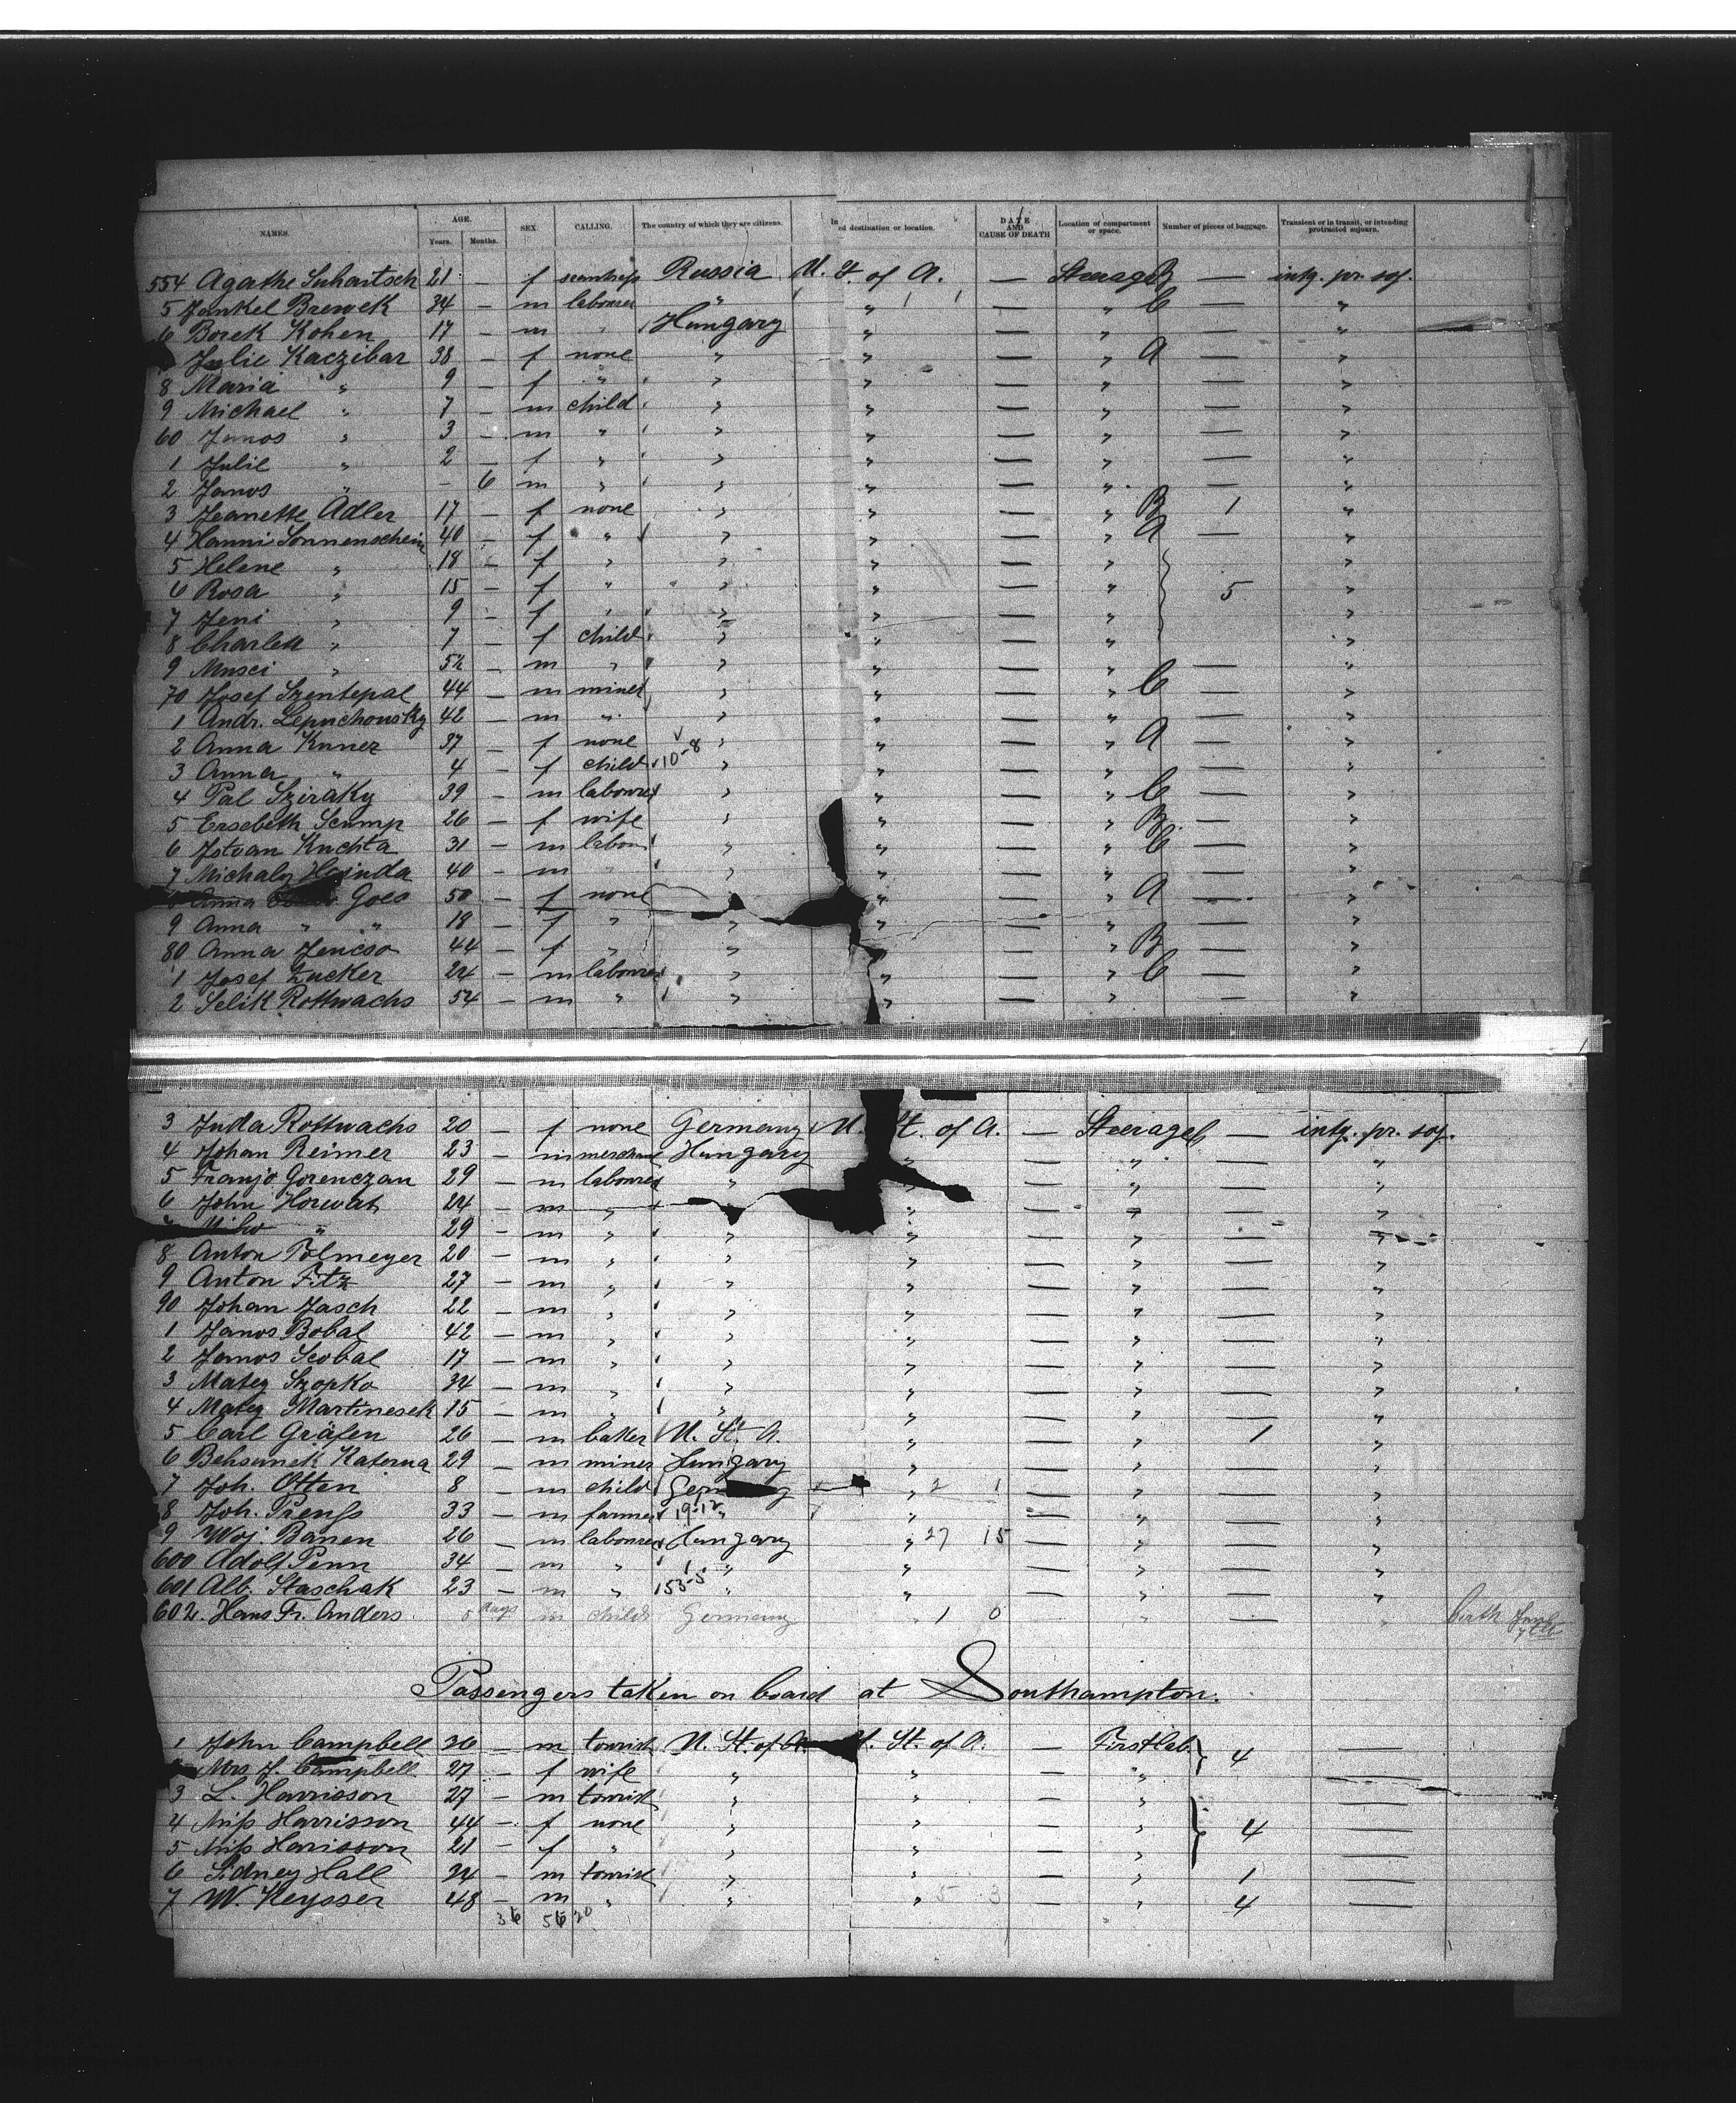 NAMES. AGE. Years. Months. SEX. CALLING. The country of which they are citizens. In ed destination or location. DATE AND CAUSE OF DEATH Location of compartment or space. Number of pieces of baggage. Transient or in transit, or intending protracted sojourn.
554 Agathe Suhartsch 21 – f seamtress Russia U. St. of A. — Steerage B — intg. pr. soj.
5 Jankel Brewek 34 – m labourer " " " C — "
6 Borek Kohen 17 – m " Hungary " — " — "
Julie Kaczibar 38 – f none " " — " A — "
8 Maria " 9 – f " " " — " — "
9 Michael " 7 – m child " " — " — "
60 Janos " 3 – m " " " — " — "
1 Julie " 2 – f " " " — " — "
2 Janos " – 6 m " " " — " — "
3 Jeanette Adler 17 – f none " " — " B 1 "
4 Hanni Sonnenschein 40 – f " " " — " A — "
5 Helene " 18 – f " " " — " "
6 Rosa " 15 – f " " " — " 5 "
7 Jeni " 9 – f " " " — " "
8 Charlott " 7 – f child " " — " "
9 " 52 – m " " " — " — "
70 Josef Szentepal 44 – m miner " " — " C — "
1 Andr. Lepuchousky 42 – m " " " — " — "
2 Anna Kuner 37 – f none " " — " A — "
3 Anna " 4 – f child 10-8 " " — " — "
4 Pal Sziraky 39 – m labourer " " — " C — "
5 Ersebeth Scump 26 – f wife " " — " B — "
6 Istvan Kuchta 31 – m labour " " — " C — "
7 Michaly Hajnda 40 – m " " " — " — "
Anna Goes 50 – f none " — " A — "
9 Anna " " 18 – f " " " — " — "
80 Anna Jencso 44 – f " " " — " B — "
1 Josef Zucker 24 – m labourer " " — " C — "
2 Selik Rottwachs 54 – m " " " — " — "
3 Juda Rottwachs 20 – f none Germany U. St. of A. — Steerage — intg. pr. soj.
4 Johan Reimer 23 – m merchant Hungary " — " — "
5 Franjo Gorenczan 29 – m labourer " " — " — "
6 John Horwat 24 – m " " " — " — "
" 29 – m " " " — " — "
8 Anton Polmeyer 20 – m " " " — " — "
9 Anton Fitz 27 – m " " " — " — "
90 Johan Jasch 22 – m " " " — " — "
1 Janos Bobal 42 – m " " " — " — "
2 Janos Scobal 17 – m " " " — " — "
3 Matey Szopko 34 – m " " " — " — "
4 Matey Martinesek 15 – m " " " — " — "
5 Carl Gräfen 26 – m baker U. St. A. " — " 1 "
6 Behsumek Katerna 29 – m miner Hungary " — " — "
7 Joh. Otten 8 – m child " 2 1 — " — "
8 Joh. Prenß 33 – m farmer 19-12 " " — " — "
9 Woj Banen 26 – m labourer Hungary " 27 15 — " — "
600 Adolf Penn 34 – m " " " — " — "
601 Alb. Staschak 23 – m " 153-5 " " — " — "
602. Hans Fr. Anders 5 days m child Germany " 1 0 " — " birth
Passengers taken on board at Southampton.
1 John Campbell 36 – m tourist U. St. of A. U. St. of A. — First Cab. 4 —
Mrs J. Campbell 27 – f wife " " — " —
3 L. Harrisson 27 – m tourist " " — " —
4 Miß Harrisson 44 – f none " " — " 4 —
5 Miß Harisson 21 – f " " " — " —
6 Sidney Hall 34 – m tourist " " — " 1 —
7 W. Keysser 48 – m " " " 5 3 — " 4 —
36 56 20